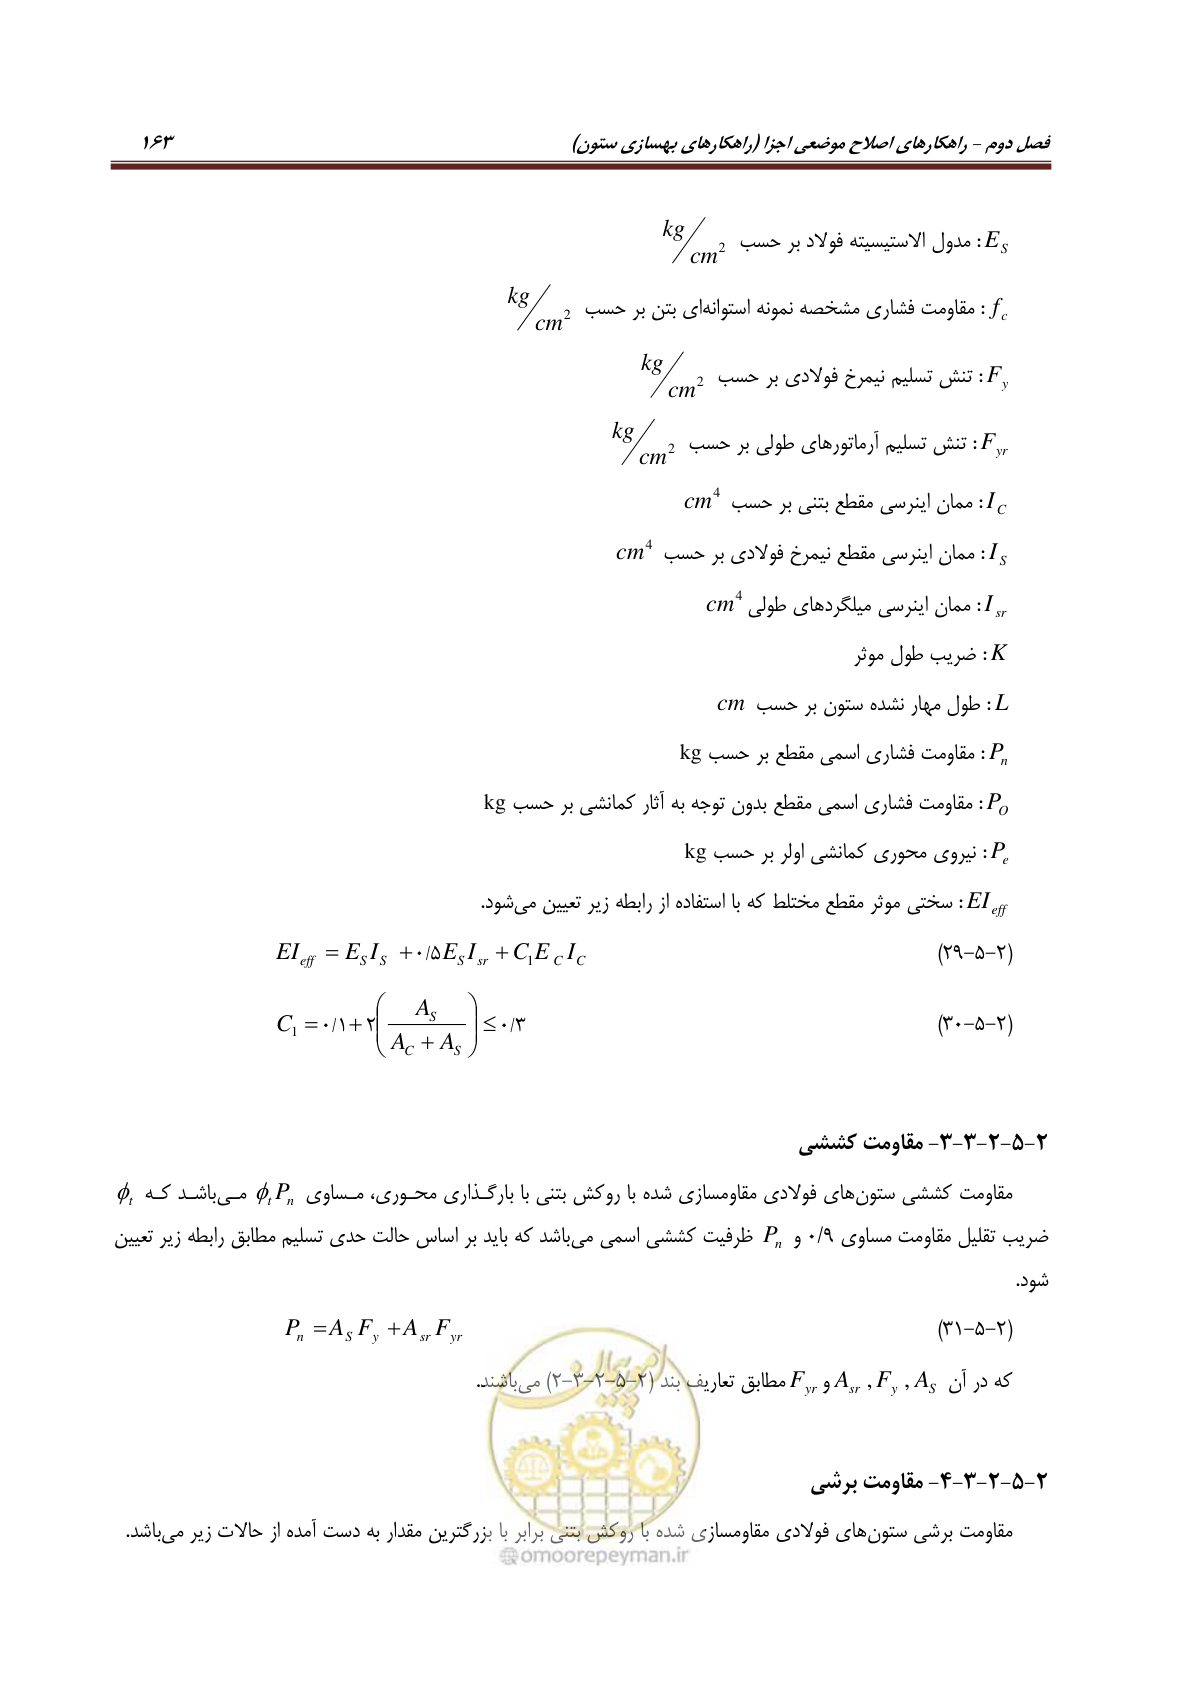 فصل دوم – راهکارهای اصلاح موضعی اجزا (راهکارهای بهسازی ستون) ۱۶۳
E_S : مدول الاستیسیته فولاد بر حسب kg/cm²
f_c : مقاومت فشاری مشخصه نمونه استوانه‌ای بتن بر حسب kg/cm²
F_y : تنش تسلیم نیمرخ فولادی بر حسب kg/cm²
F_yr : تنش تسلیم آرماتورهای طولی بر حسب kg/cm²
I_C : ممان اینرسی مقطع بتنی بر حسب cm⁴
I_S : ممان اینرسی مقطع نیمرخ فولادی بر حسب cm⁴
I_sr : ممان اینرسی میلگردهای طولی cm⁴
K : ضریب طول موثر
L : طول مهار نشده ستون بر حسب cm
P_n : مقاومت فشاری اسمی مقطع بر حسب kg
P_O : مقاومت فشاری اسمی مقطع بدون توجه به آثار کمانشی بر حسب kg
P_e : نیروی محوری کمانشی اولر بر حسب kg
EI_eff : سختی موثر مقطع مختلط که با استفاده از رابطه زیر تعیین می‌شود.
(۲-۵-۲۹) EI_eff = E_S I_S + ۰/۵ E_S I_sr + C₁ E_C I_C
(۲-۵-۳۰) C₁ = ۰/۱ + ۲(A_S / (A_C + A_S)) ≤ ۰/۳
۲-۵-۲-۳-۳- مقاومت کششی
مقاومت کششی ستون‌های فولادی مقاومسازی شده با روکش بتنی با بارگذاری محوری، مساوی ϕ_t P_n می‌باشد که ϕ_t
ضریب تقلیل مقاومت مساوی ۰/۹ و P_n ظرفیت کششی اسمی می‌باشد که باید بر اساس حالت حدی تسلیم مطابق رابطه زیر تعیین
شود.
(۲-۵-۳۱) P_n = A_S F_y + A_sr F_yr
که در آن A_S , F_y , A_sr و F_yr مطابق تعاریف بند (۲-۵-۲-۳-۲) می‌باشند.
امور پیمان
۲-۵-۲-۳-۴- مقاومت برشی
مقاومت برشی ستون‌های فولادی مقاومسازی شده با روکش بتنی برابر با بزرگترین مقدار به دست آمده از حالات زیر می‌باشد.
@omoorepeyman.ir